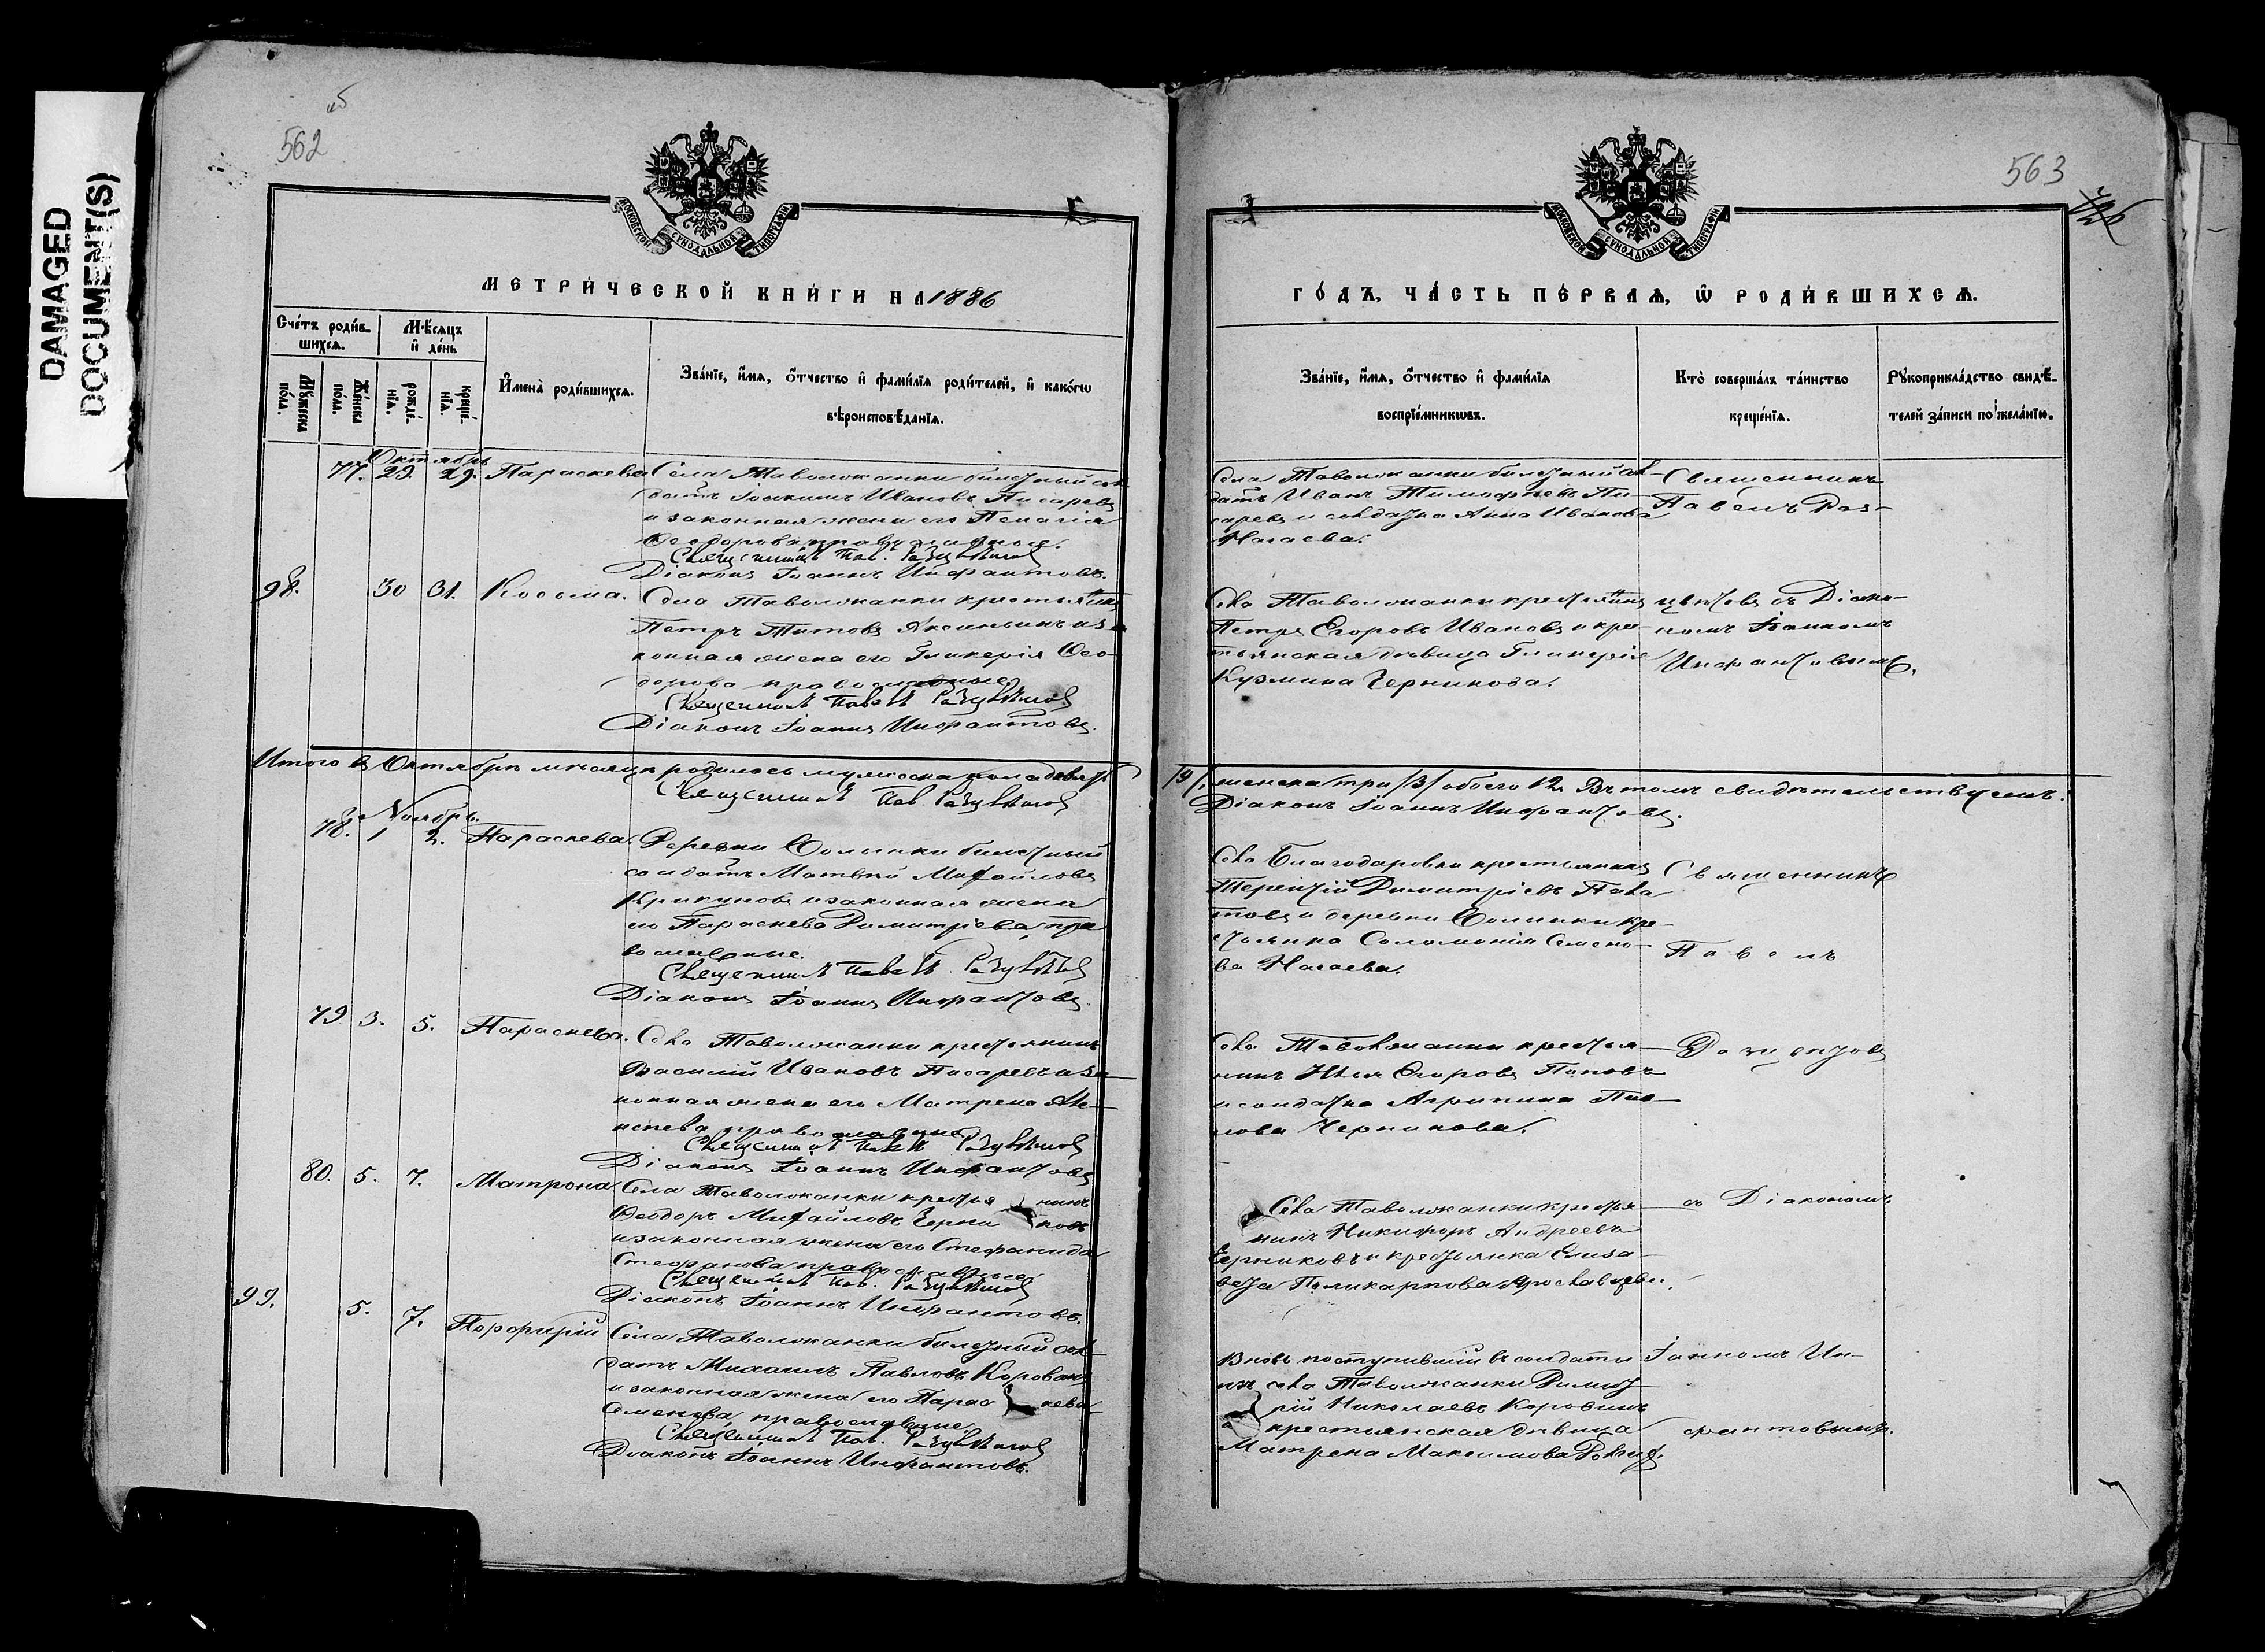 DAMAGED
DOCUMENT(S)
562
МОСКОВСКОЙ СѴНОДАЛЬНОЙ ТИПОГРАФІИ
МЕТРИ́ЧЕСКОЙ КНИ́ГИ НА 1886
Сче́тъ роди́в-
шихсѧ.
Мꙋ́жеска
по́ла.
Же́нска
по́ла.
Мѣ́сѧцъ
и҆ де́нь
рожде́-
нїѧ.
креще́-
нїѧ.
И҆мена̀ роди́вшихсѧ.
Зва́нїе, и҆́мѧ, ѻ҆́тчество и҆ фами́лїѧ роди́телей, и҆ како́гѡ
вѣроисповѣ́данїѧ.
Октябрь
77. 29. 29. Параскева
Села Таволожанки билетный сол
датъ Іоакимъ Ивановъ Писаревъ
и законная жена его Пелагія
Ѳеодорова, православные.
Священникъ Пав. Разцвѣтовъ
Діаконъ Іоаннъ Инфантовъ.
98. 30 31. Косьма.
Села Таволожанки крестьянинъ
Петръ Титовъ Аксиньинъ и за
конная жена его Гликерія Ѳео-
дорова православные
Священникъ Павелъ Разцвѣтовъ
Діаконъ Іоаннъ Инфантовъ.
Итого въ Октябрѣ мѣсяцѣ родилось мужеска пола девять
Священникъ Пав. Разцвѣтовъ
Ноябрь.
78. 1 2. Параскева.
Деревни Солынки билетный
солдатъ Матвѣй Михайловъ
Крикуновъ и законная жена
его Параскева Димитріева, пра
вославные.
Священникъ Павелъ Разцвѣтовъ
Діаконъ Іоаннъ Инфантовъ.
79 3. 5. Параскева.
Села Таволожанки крестьянинъ
Василій Ивановъ Писаревъ и за-
конная жена его Матрена Але-
ксѣева, православные
Священникъ Павелъ Разцвѣтовъ
Діаконъ Іоаннъ Инфантовъ
80. 5. 7. Матрона.
Села Таволожанки крестья нинъ
Ѳеодоръ Михайловъ Черни ковъ
и законная жена его Стефанида
Стефанова православные
Священникъ Пав. Разцвѣтовъ
Діаконъ Іоаннъ Инфантовъ.
99. 5. 7. Порфирій
Села Таволожанки билетный сол-
датъ Михаилъ Павловъ Коровинъ
и законная жена его Парас кева
Семенова, православные
Священникъ Пав. Разцвѣтовъ
Діаконъ Іоаннъ Инфантовъ.
563
МОСКОВСКОЙ СѴНОДАЛЬНОЙ ТИПОГРАФІИ
ГО́ДЪ, ЧА́СТЬ ПЕ́РВАѦ, Ѡ҆ РОДИ́ВШИХСѦ.
Зва́нїе, и҆́мѧ, ѻ҆́тчество и҆ фами́лїѧ
воспрїе́мникѡвъ.
Кто̀ соверша́лъ та́инство
креще́нїѧ.
Рꙋкоприкла́дство свидѣ́-
телей за́писи по жела́нїю.
Села Таволожанки билетный сол-
датъ Иванъ Тимофѣевъ Пи-
саревъ и солдатка Анна Иванова
Нагаева.
Священникъ
Павелъ Раз-
Села Таволожанки крестьянинъ
Петръ Егоровъ Ивановъ и кре-
стьянская дѣвица Гликерія
Кузмина Черникова.
цвѣтовъ съ Діако-
номъ Іоанномъ
Инфантовымъ.
/9/, женска три /3/ обоего 12. Въ томъ свидѣтельствуемъ:
Діаконъ Іоаннъ Инфантовъ.
Села Благодаровки крестьянинъ
Терентій Димитріевъ
и деревни Солынки кре-
стьянка Соломонія Семено-
ва Нагаева.
Священникъ
Павелъ
Села Таволожанки крестья-
нинъ Илья Егоровъ Поповъ
и солдатка Агрипина Пав-
лова Черникова.
Разцвѣтовъ
Села Таволжанки крестья-
нинъ Никифоръ Андреевъ
Черниковъ и крестьянка Елиза-
вета Поликарпова Ярославцева.
съ Діакономъ
Вновь поступившій въ солдаты
изъ села Таволжанки Димит-
рій Николаевъ Коровинъ
и крестьянская дѣвица
Матрена Максимова
Іоанномъ Ин-
фантовымъ.